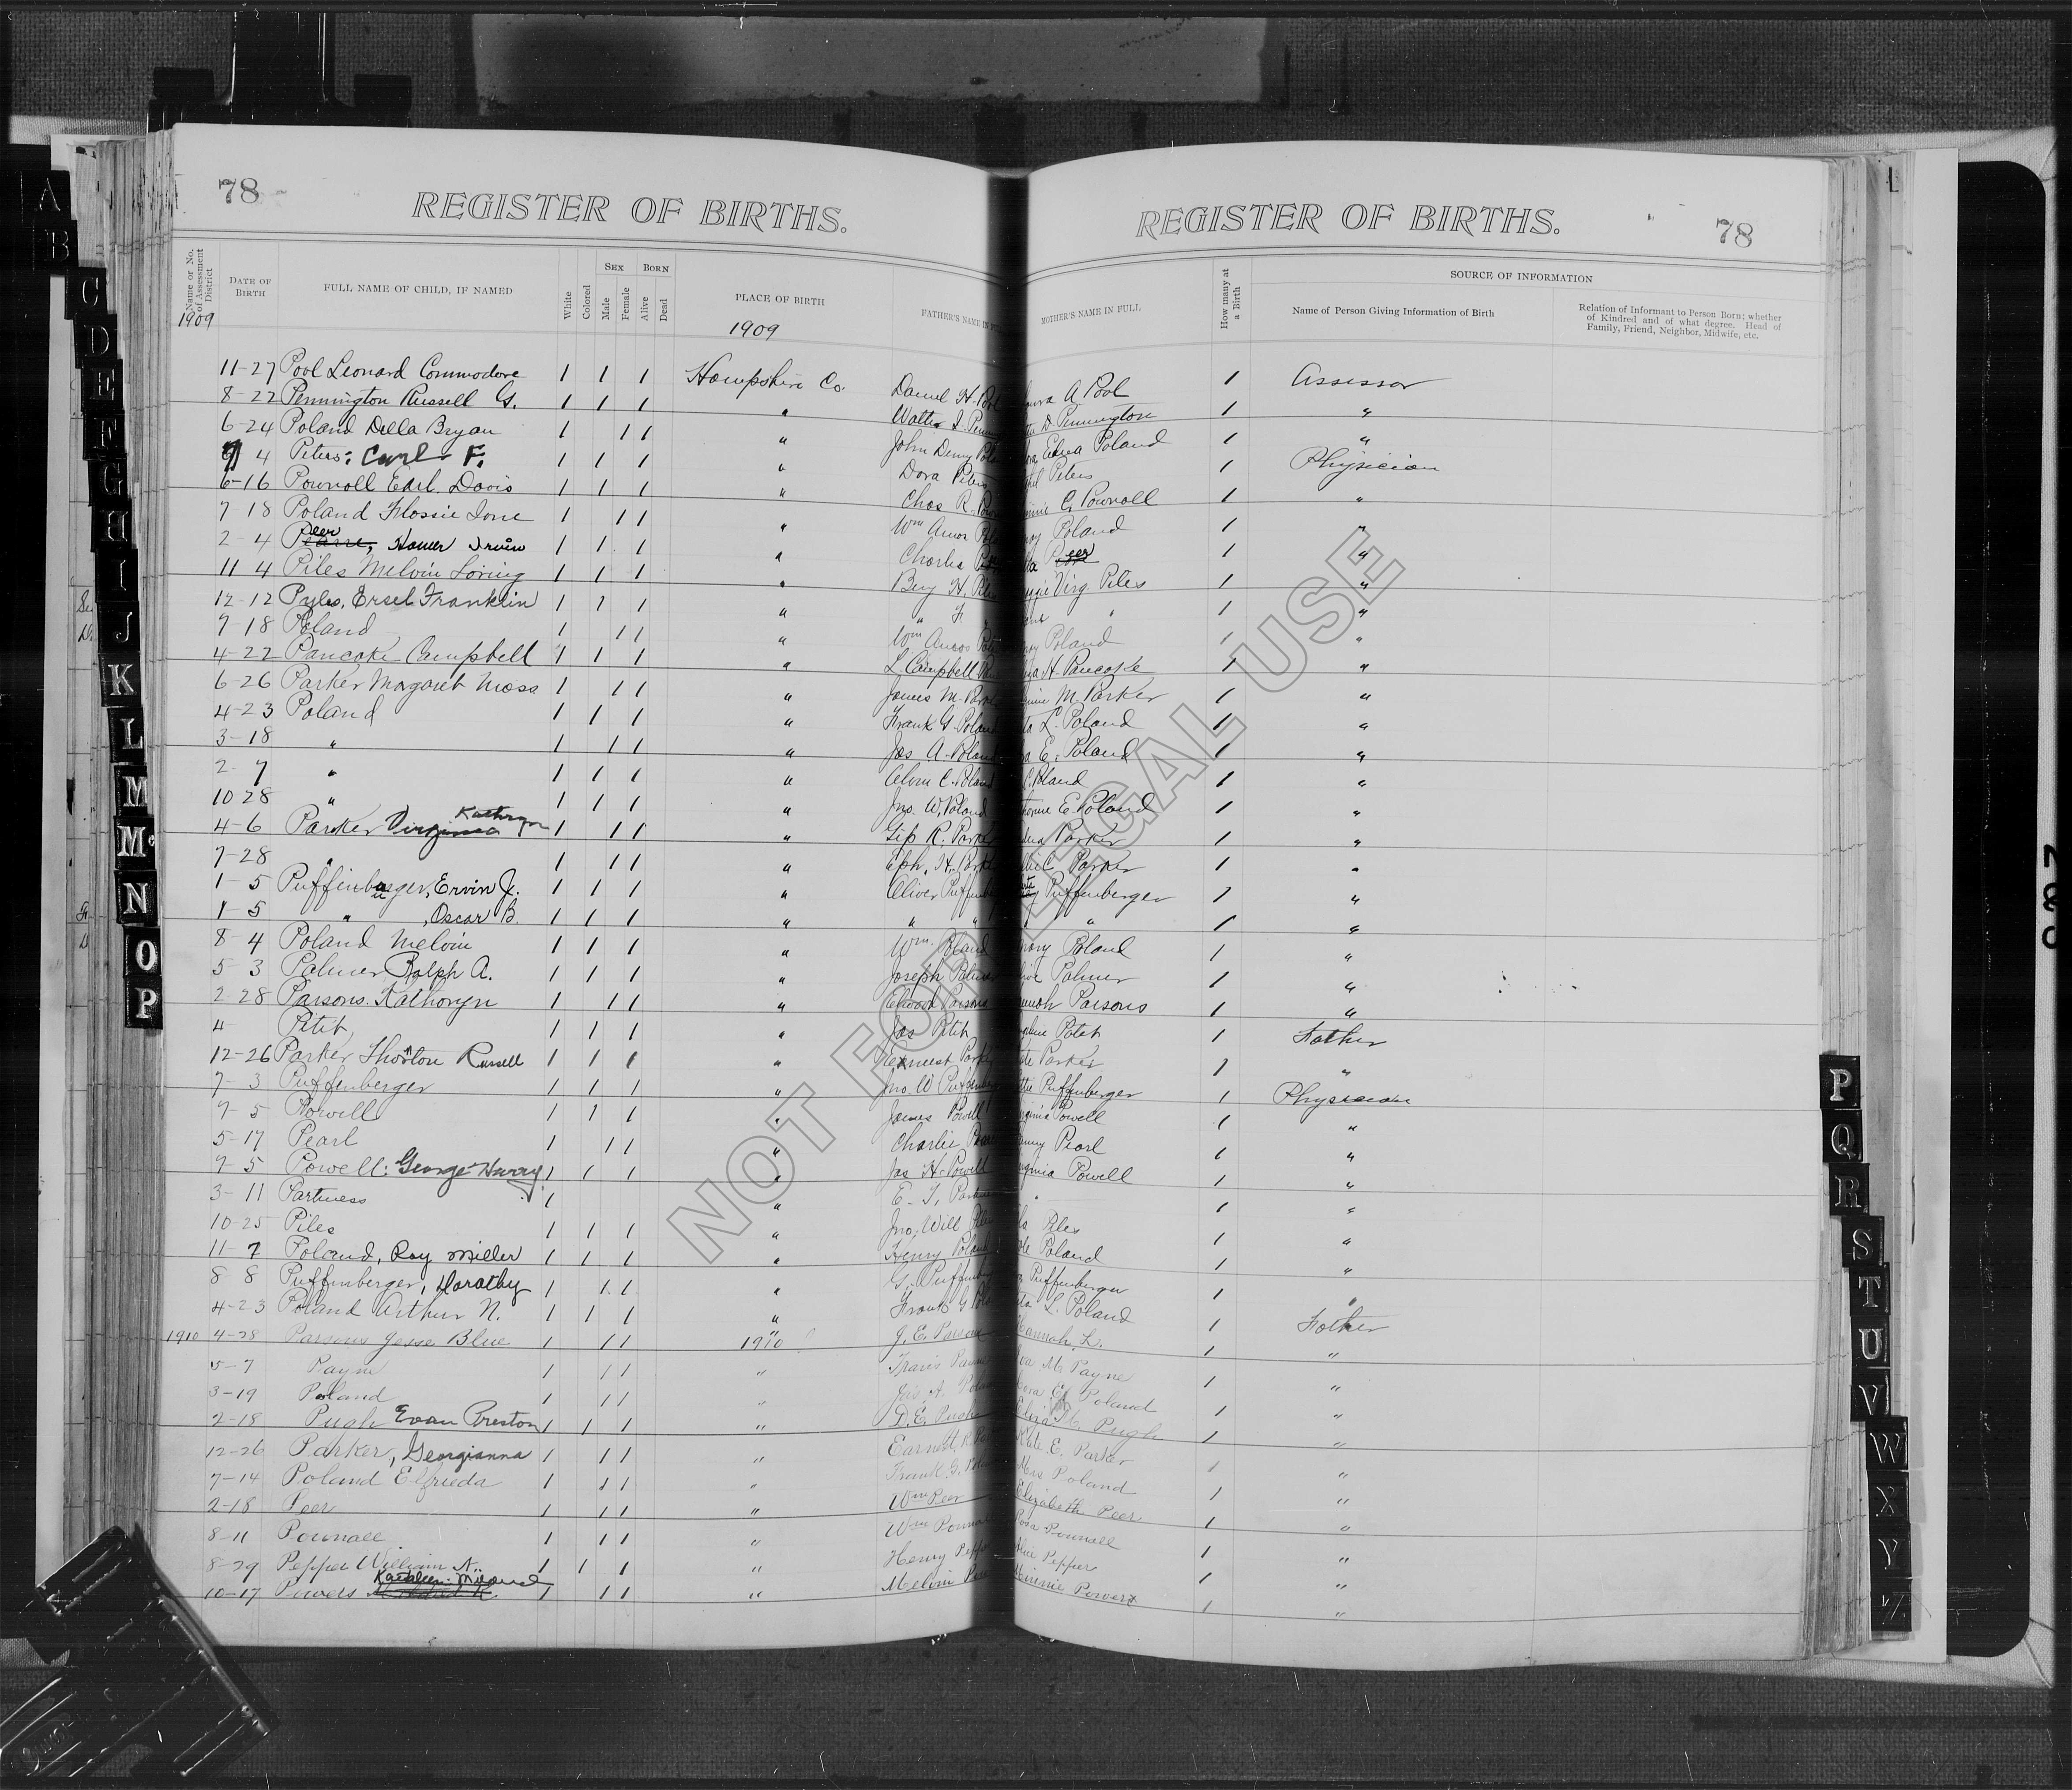 78
REGISTER OF BIRTHS.
REGISTER OF BIRTHS.
78
Name or No. of Assessment District
DATE OF BIRTH
FULL NAME OF CHILD, IF NAMED
White
Colored
SEX
Male
Female
BORN
Alive
Dead
PLACE OF BIRTH
FATHER'S NAME IN FULL
MOTHER'S NAME IN FULL
How many at a Birth
SOURCE OF INFORMATION
Name of Person Giving Information of Birth
Relation of Informant to Person Born; whether of Kindred and of what degree. Head of Family, Friend, Neighbor, Midwife, etc.
1909
1909
11-27 Pool Leonard Commodore 1 1 1 Hampshire Co. Daniel H. Pool A Pool 1 Assessor
8-22 Pennington Russell G. 1 1 1 " Walter D Pennington 1 "
6-24 Poland Della Bryan 1 1 1 " John Denny Edna Poland 1 "
4 Peters: Carl F. 1 1 1 " Dora Peters Peters 1 Physician
6-16 Pownall Earl Davis 1 1 1 " Chas R. C. Pownall 1 "
7 18 Poland Flossie Ione 1 1 1 " Wm Amos Poland 1 "
2-4 Peer, Homer Irvin 1 1 1 " Charlie Peer 1 "
11 4 Piles Melvin Loring 1 1 1 " Benj H. Piles Virg Piles 1 "
12-12 Pyles, Ersel Franklin 1 1 1 " " " " 1 "
7-18 Poland 1 1 1 " Wm Amos Poland 1 "
4-22 Pancake Campbell 1 1 1 " L. Campbell H. Pancake 1 "
6-26 Parker Margaret 1 1 1 " James M. M. Parker 1 "
4-23 Poland 1 1 1 " Frank G. Poland L. Poland 1 "
3-18 " 1 1 1 " Jas A. Poland E. Poland 1 "
2-7 " 1 1 1 " Alvin C. Poland Poland 1 "
10-28 " 1 1 1 " Jno. W. Poland E Poland 1 "
4-6 Parker Virginia Kathryn 1 1 1 " R. Parker Parker 1 "
7-28 " 1 1 1 " Eph. H. C Parker 1 "
1-5 Puffinbarger, Ervin J. 1 1 1 " Oliver Puffenberger 1 "
1-5 " , Oscar B. 1 1 1 " " " " 1 "
8-4 Poland Melvin 1 1 1 " Wm. Poland Poland 1 "
5-3 Palmer Ralph A. 1 1 1 " Joseph Palmer Palmer 1 "
2-28 Parsons Kathoryn 1 1 1 " Parsons Parsons 1 "
4- Petit 1 1 1 " Jas Petit 1 Father
12-26 Parker Russell 1 1 1 " Parker 1 "
7-3 Puffenberger 1 1 1 " Jno. W Puffenberger 1 Physician
7-5 Powell 1 1 1 " James Powell Powell 1 "
5-17 Pearl 1 1 1 " Charlie Pearl 1 "
7-5 Powell: George Harry 1 1 1 " Jas H. Powell Powell 1 "
3-11 Partness 1 " E. T. " 1 "
10-25 Piles 1 1 1 " Jno. Will Piles 1 "
11-7 Poland, Ray Miller 1 1 1 " Henry Poland Poland 1 "
8 8 Puffinberger, Dorathy 1 1 1 " G. Puffenberger 1 "
4-23 Poland Arthur N. 1 1 1 " Frank G L. Poland 1 Father
1910 4-28 Parsons Jesse Blue 1 1 1 1910 J. E. Parsons Hannah L. 1 "
5-7 Payne 1 1 1 " Travis M Payne 1 "
3-19 Poland 1 1 1 " Jas. A. Poland 1 "
2-18 Pugh Evan Preston 1 1 1 " D. E. Pugh Eliza M. Pugh 1 "
12-26 Parker, Georgianna 1 1 1 " Earnest Kate E. Parker 1 "
7-14 Poland Elfrieda 1 1 1 " Frank G. Mrs Poland 1 "
2-18 Peer 1 1 1 " Wm Peer Elizabeth Peer 1 "
8-11 Pownall 1 1 1 " Wm Pownall Rosa Pownall 1 "
8-29 Pepper William N. 1 1 1 " Henry Pepper Pepper 1 "
10-17 Powers Kathleen Mildred 1 1 1 " Melvin Minnie Powers 1 "
NOT FOR LEGAL USE
A
B
C
D
E
F
G
H
I
J
K
L
M
Mc
N
O
P
P
Q
R
S
T
U
V
W
X
Y
Z